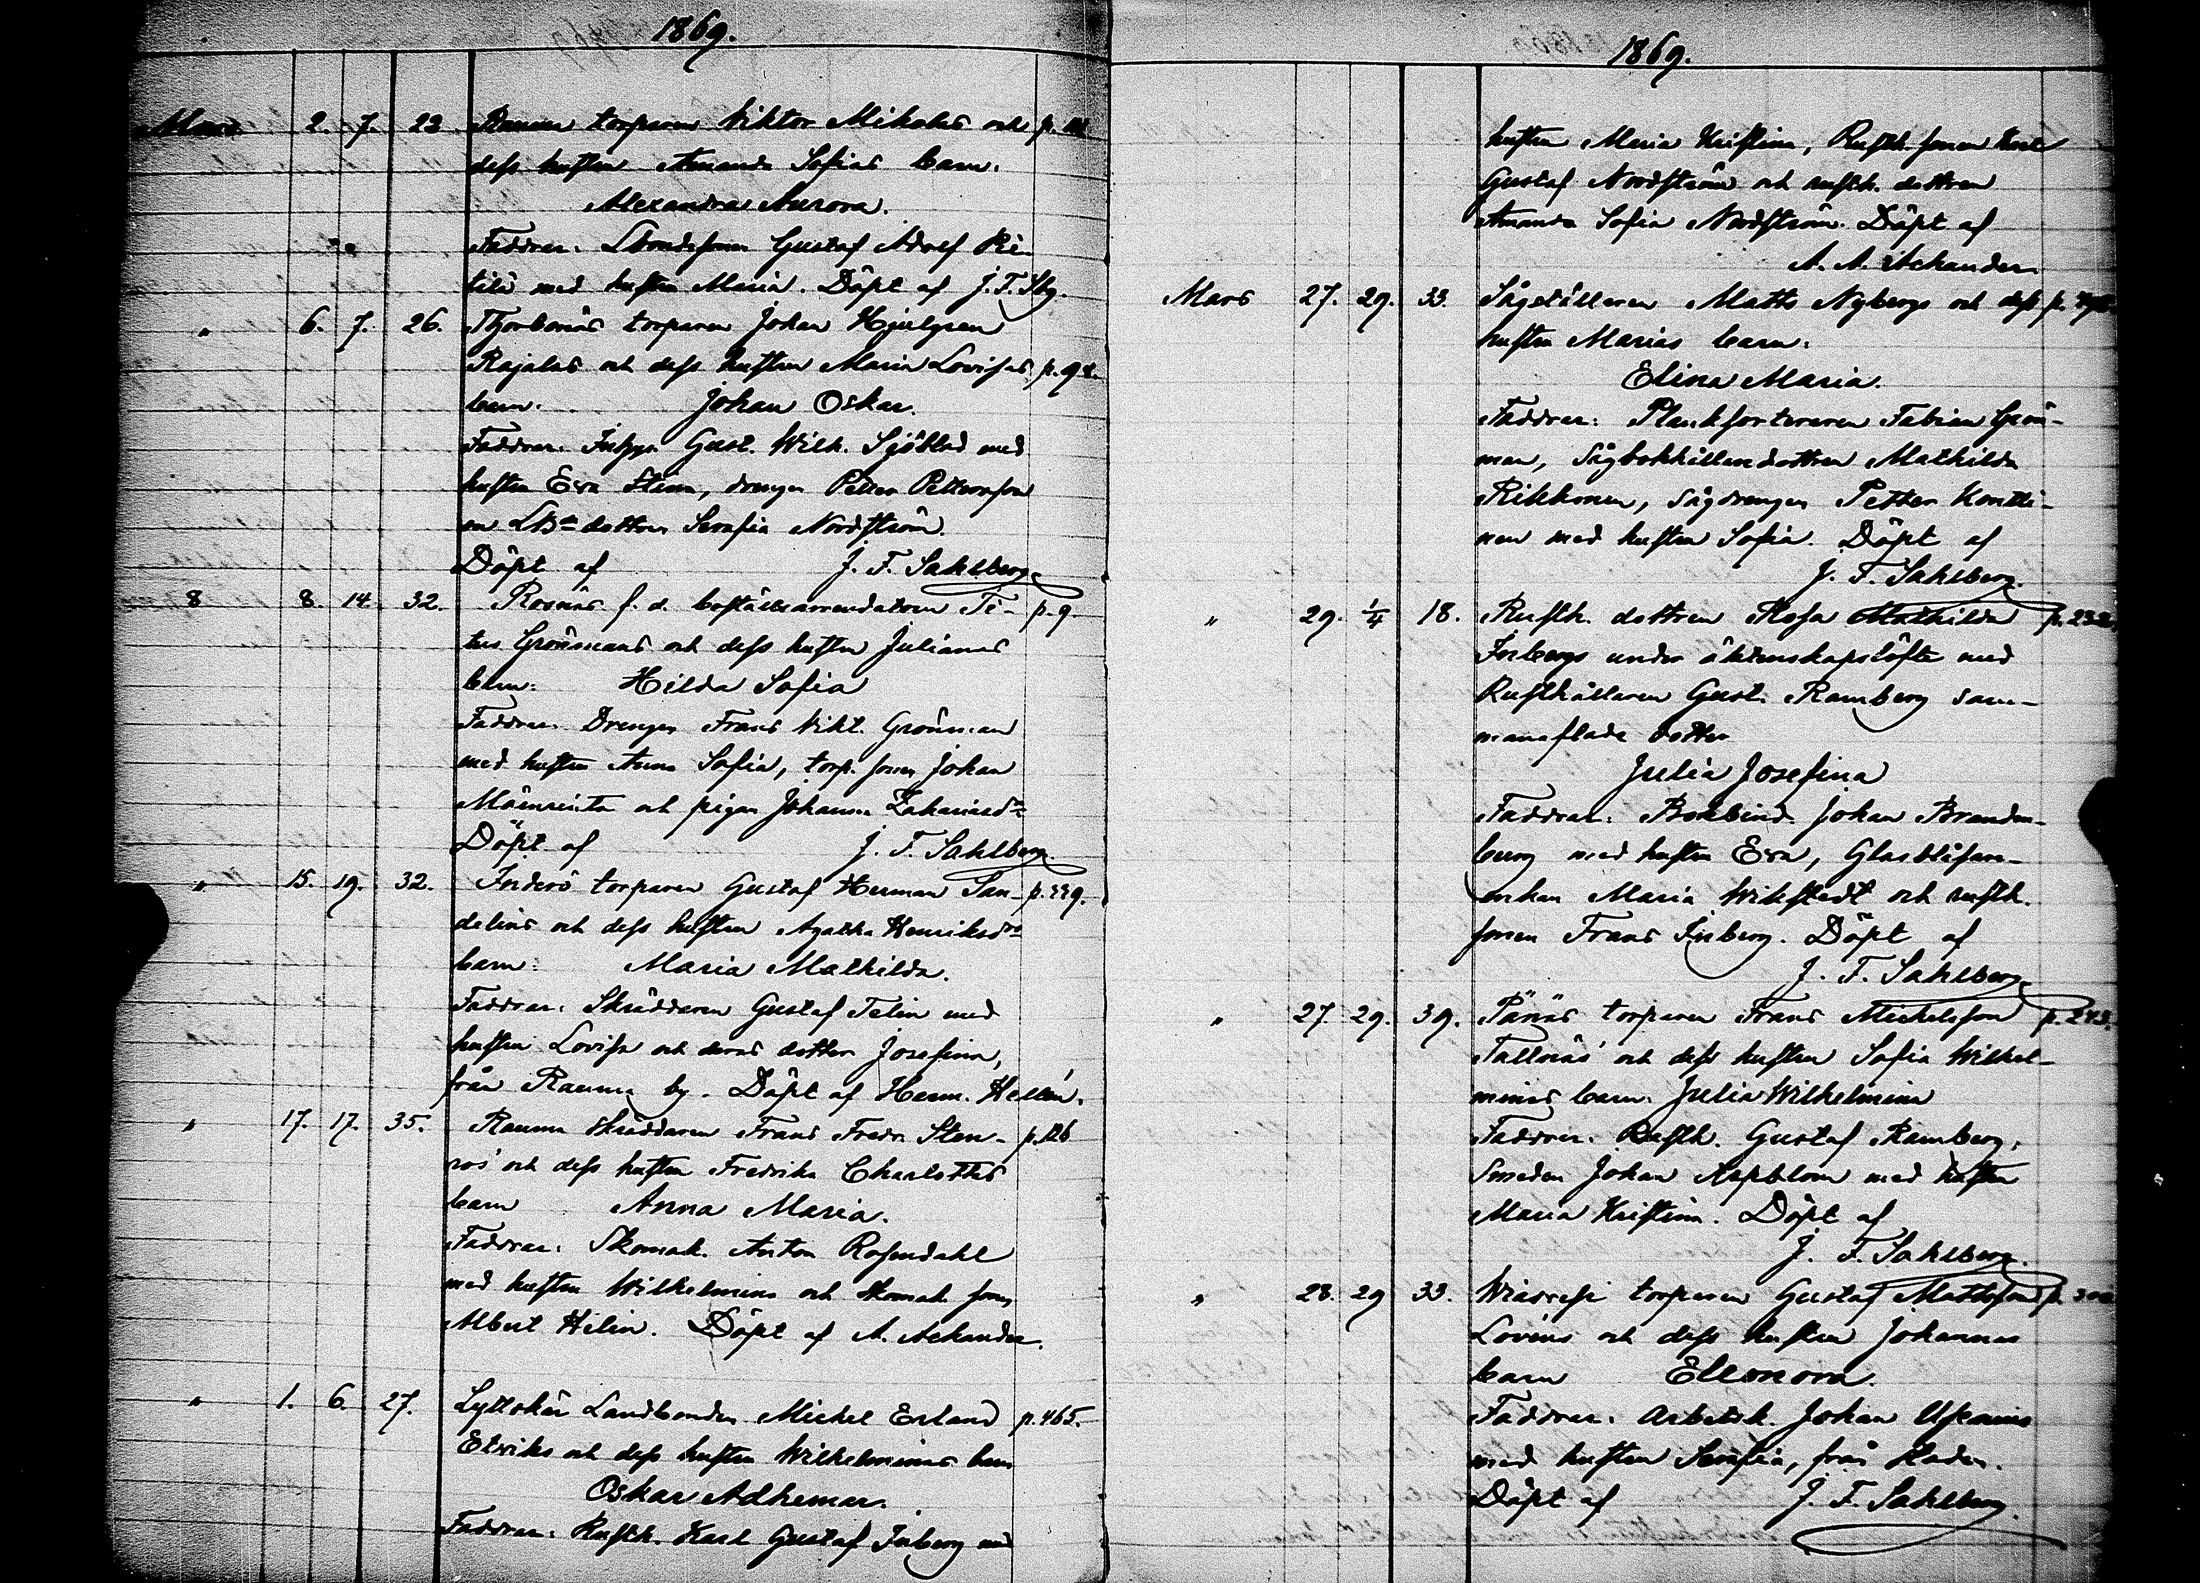 1869.
Mars 2. 7. 23 torparen Viktor Mikolas och p.
dess hustru Amanda Sofias barn.
Alexandra Aurora.
Faddrar: Gustaf Adolf
med hustru Maria. Döpt af J. F. Sbg.
" 6. 7. 26. torparen Johan Hjulgren
Rajalas och dess hustru Maria Lovisas p. 98.
barn. Johan Oskar.
Faddrar: Gust. Wilh. Sjöblad med
hustru Eva Stina, drengen Petter Pettersson
dottren Serafia Nordström.
Döpt af J. F. Sahlberg.
8 8. 14. 32. Rosnäs f. d. Ti- p. 9.
tus Grönmans och dess hustru Julianas
barn: Hilda Sofia
Faddrar: Drengen Frans Vikt. Grönman
med hustru Anna Sofia, torp. sonen Johan
och pigan Johanna Zakariasdr
Döpt af J. F. Sahlberg.
" 15. 19. 32. torparen Gustaf Herman San- p. 239.
delins och dess hustru Agatha Henriksdrs
barn: Maria Mathilda.
Faddrar: Skräddaren Gustaf Telin med
hustru Lovisa och deras dotter Josefina,
från Rauma by. Döpt af Herm. Hellén.
" 17. 17. 35. Rauma skräddaren Frans Fredr. Sten- p. 126
ros' och dess hustru Fredrika Charlottas
barn Anna Maria.
Faddrar: Skomak. Anton Rosendahl
med hustru Wilhelmina och skomak. sonen
Albert Helin. Döpt af A. Achander.
" 1. 6. 27. Lyttskär Landbonden Michel Erland p. 465.
och dess hustru Wilhelminas barn
Oskar Adhemar.
Faddrar: Rusth. Karl Gustaf Inberg med
1869.
hustru Maria Kristina, Rusth. sonen Karl
Gustaf Nordström och rusth. dottren
Amanda Sofia Nordström. Döpt af
A. A. Achander.
Mars 27. 29. 33. Sågställaren Matts Nybergs och dess p.
hustru Marias barn:
Elina Maria.
Faddrar: Planksorteraren Fabian Grön-
man, Sågbokhållaredottren Mathilda
Rikkonen, sågdrengen Petter Kontti-
nen med hustru Sofia. Döpt af
J. F. Sahlberg.
" 29. 1/4 18. Rusth. dottren Rosa Mathilda p. 232.
Inbergs under äktenskapslöfte med
Rusthållaren Gust. Ramberg sam-
manaflade dotter
Julia Josefina
Faddrar: Bokbind. Johan Branden-
burg med hustru Eva, Glasblåsare-
enkan Maria Wikstedt och rusth.
sonen Frans Inberg. Döpt af
J. F. Sahlberg.
" 27. 29. 39. Pänäs torparen Frans Michelsson p. 243.
Tallnäs' och dess hustru Sofia Wilhel-
minas barn. Julia Wilhelmina
Faddrar: Rusth. Gustaf Ramberg,
Smeden Johan Aspblom med hustru
Maria Kristina. Döpt af
J. F. Sahlberg.
" 28. 29 33. torparen Gustaf Mattsson p.
Lovéns och dess hustru Johannas
barn Eleonora.
Faddrar: Arbetsk. Johan
med hustru Serafia, från staden.
Döpt af J. F. Sahlberg.